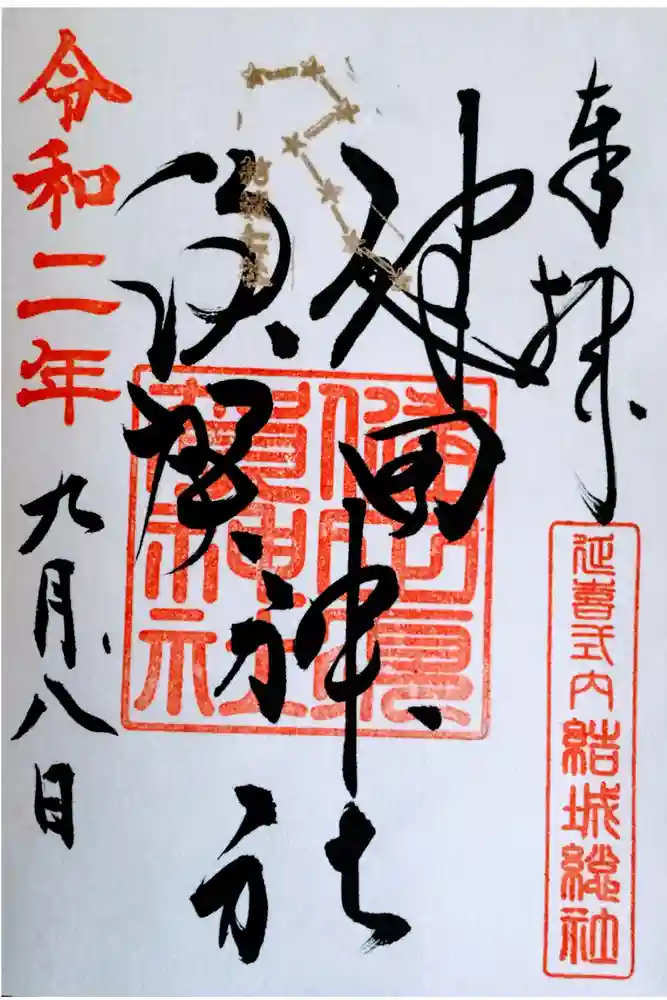 奉拝
延喜式内結城総社
健田
須賀
神社
健田須
賀神社
結城七社
令和二年
九月八日